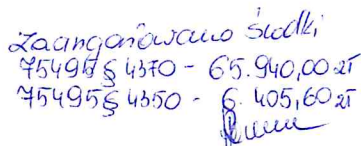 Zaangażowano środki
75495 § 4370 - 65.940,00 zł
75495 § 4350 - 6.405,60 zł